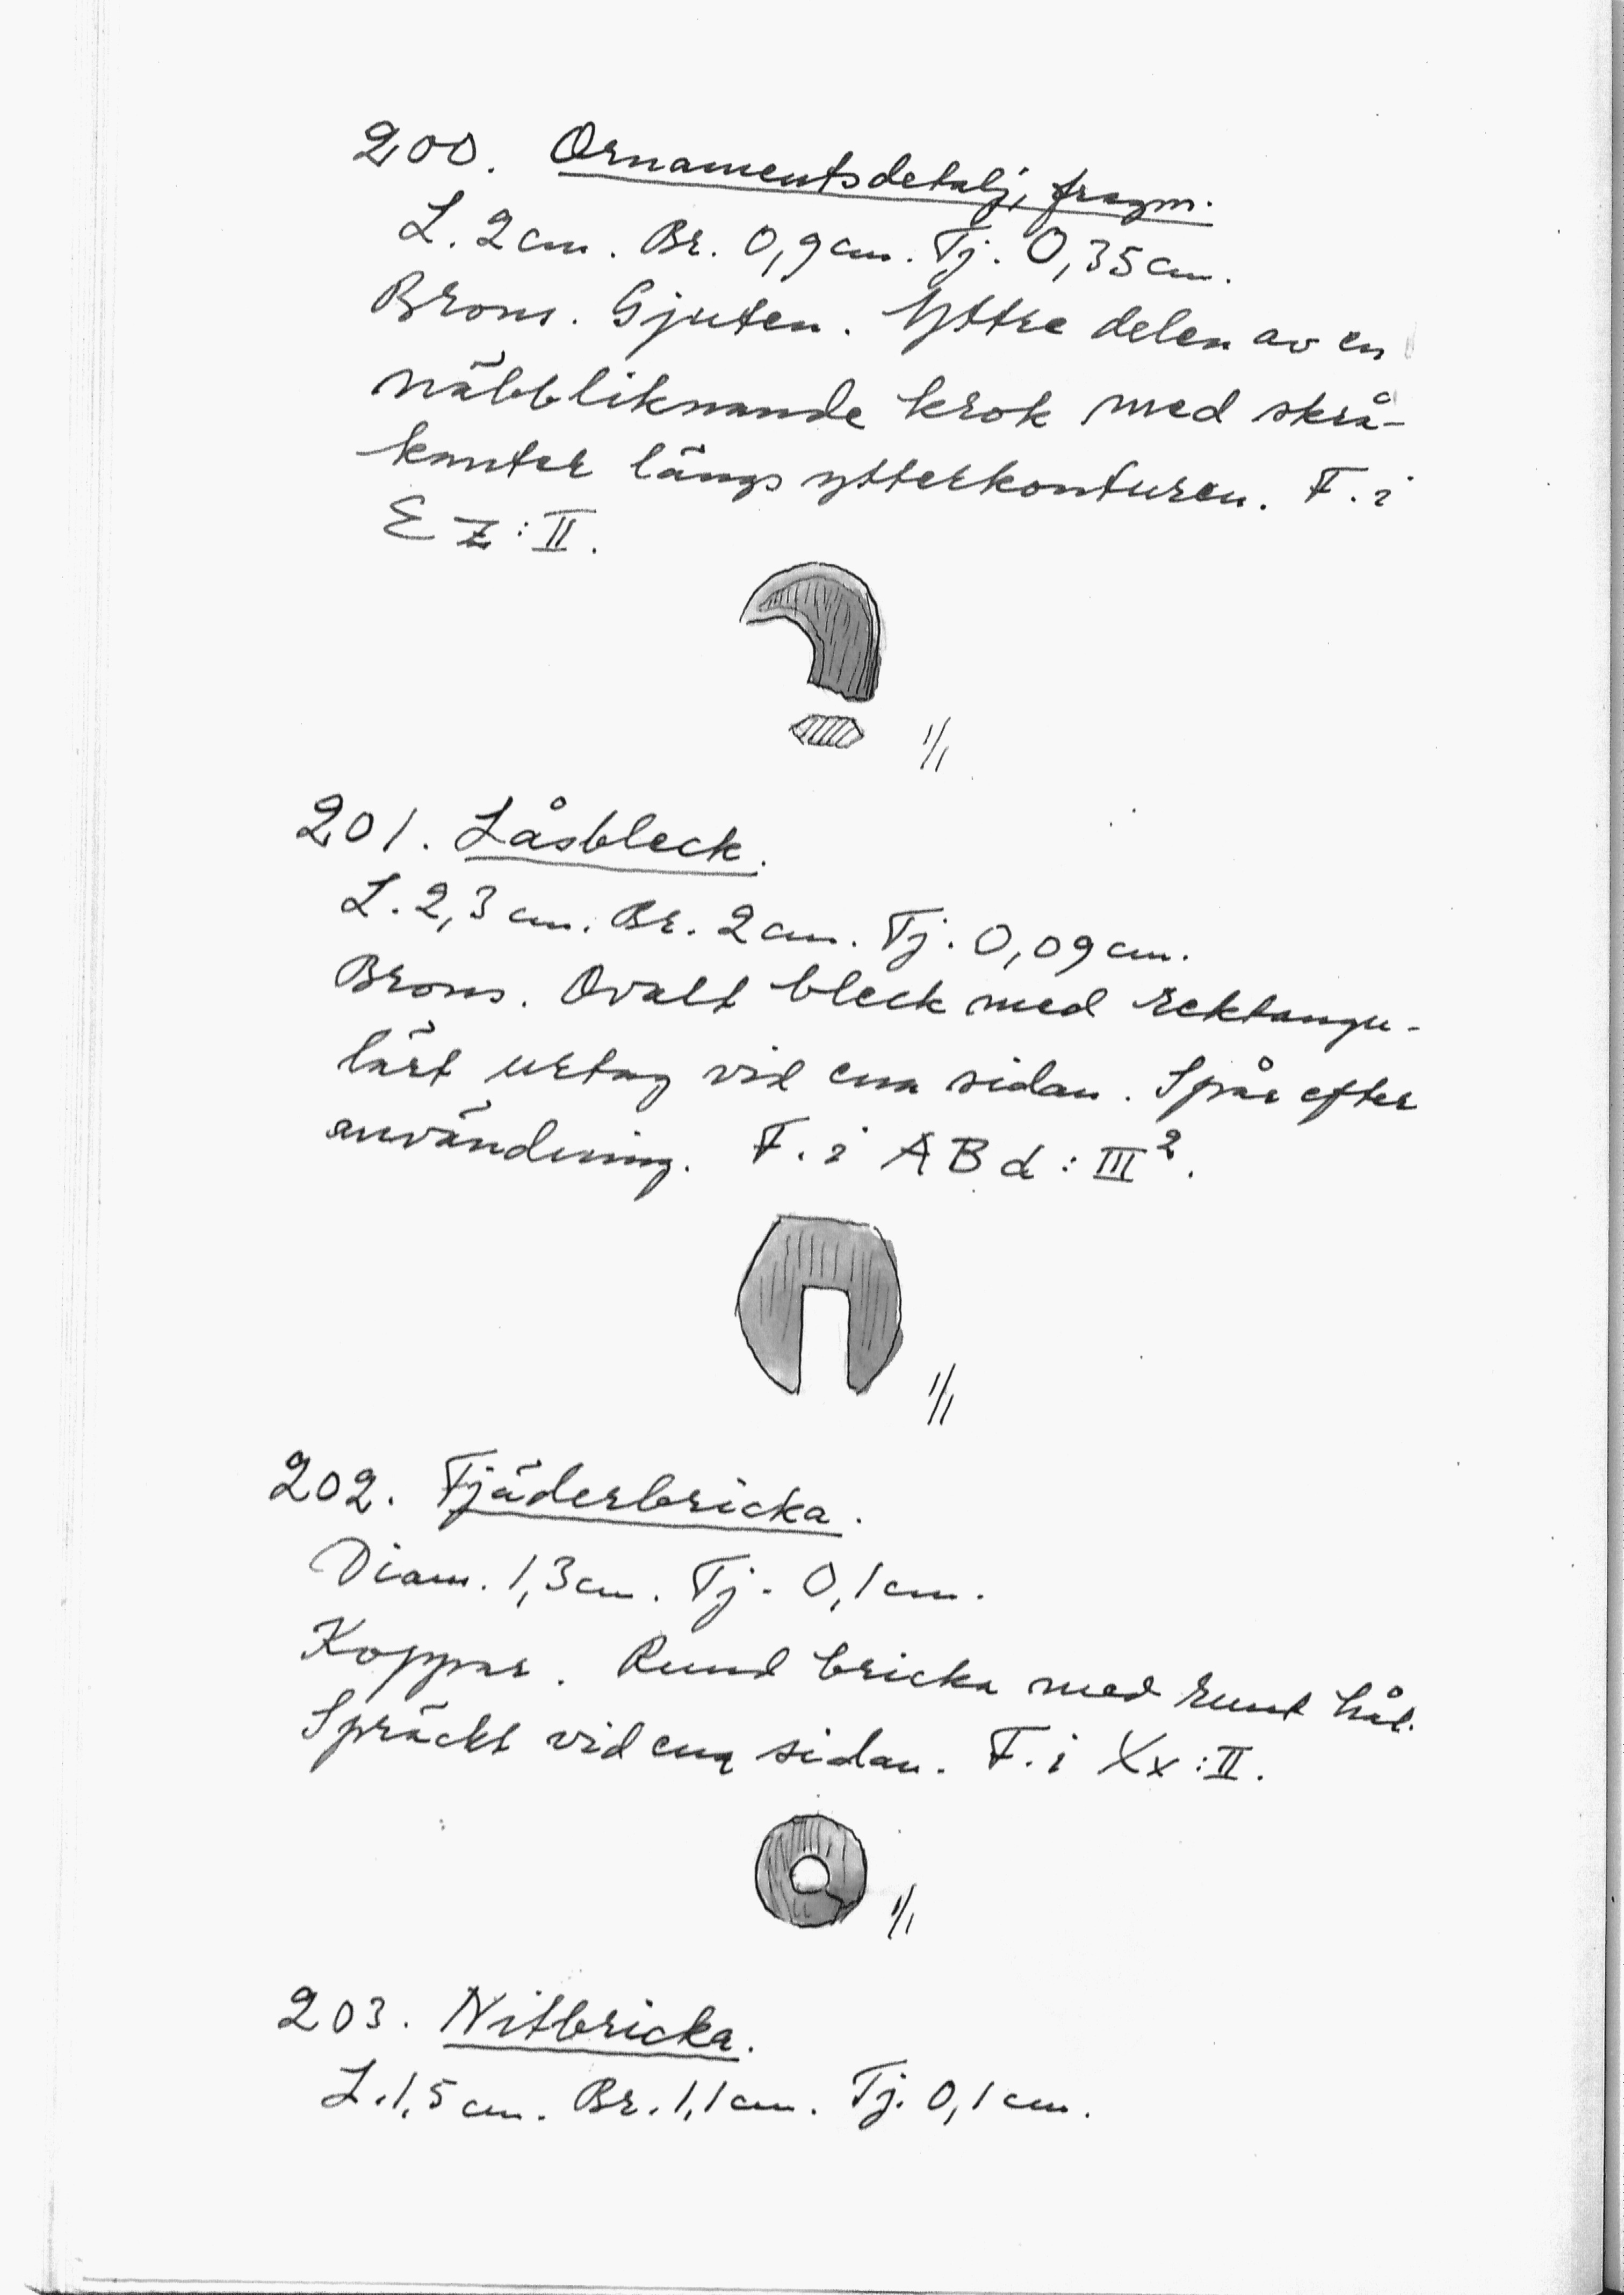 200. Ornamentsdetalj, fragm.
L. 2 cm. Br. 0,9 cm. Tj. 0,35 cm.
Brons. Gjuten. Yttre delen av en
näbbliknande krok med skrå-
kanter längs ytterkonturen. F. i
EZ:II.
1/1
201. Låsbleck.
L. 2,3 cm. Br. 2 cm. Tj. 0,09 cm.
Brons. Ovalt bleck med rektangu-
lärt urtag vid ena sidan. Spår efter
användning. F. i ABd:III².
1/1
202. Fjäderbricka.
Diam. 1,3 cm. Tj. 0,1 cm.
Koppar. Rund bricka med runt hål.
Spräckt vid ena sidan. F. i Xx:II.
1/1
203. Nitbricka.
L. 1,5 cm. Br. 1,1 cm. Tj. 0,1 cm.